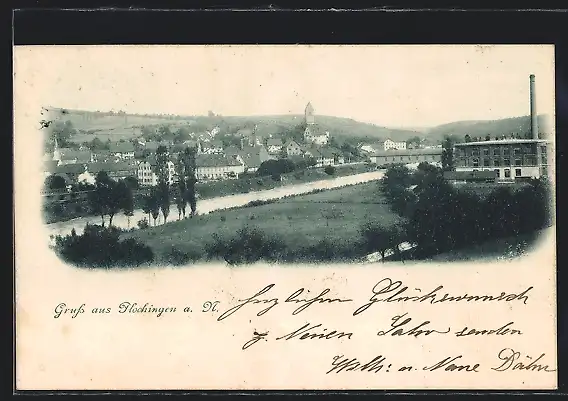 Gruß aus Plochingen a. N.
Herzlichen Glückwunsch
z. Neuen Jahr senden
Wilh: u. Nane Döhn